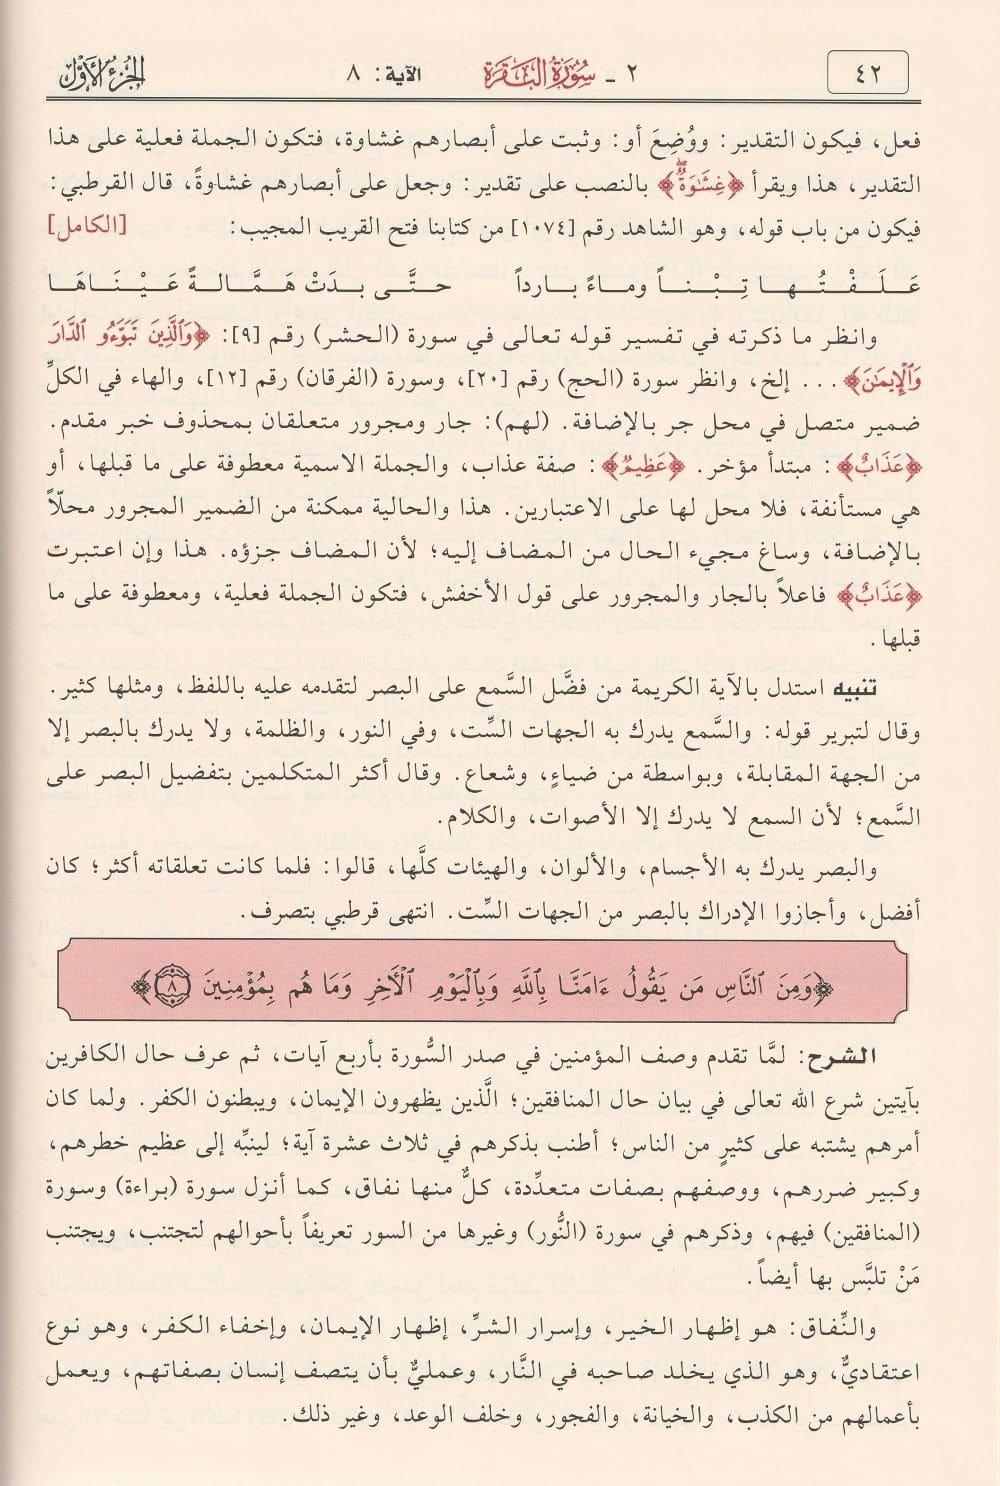 ٤٢ ٢ - سُورَةُ البَقَرَةِ الآية: ٨ الجزء الأوّل
فعل، فيكون التقدير: ووُضِعَ أو: وثبت على أبصارهم غشاوة، فتكون الجملة فعلية على هذا
التقدير، هذا ويقرأ ﴿غِشَٰوَةٌۖ﴾ بالنصب على تقدير: وجعل على أبصارهم غشاوةً، قال القرطبي:
فيكون من باب قوله، وهو الشاهد رقم [١٠٧٤] من كتابنا فتح القريب المجيب: [الكامل]
عَلَفْتُها تِبْناً وماءً بارداً حتَّى بدَتْ هَمَّالةً عَيْنَاهَا
وانظر ما ذكرته في تفسير قوله تعالى في سورة (الحشر) رقم [٩]: ﴿وَٱلَّذِينَ تَبَوَّءُو ٱلدَّارَ
وَٱلْإِيمَٰنَ﴾ ... إلخ، وانظر سورة (الحج) رقم [٢٠]، وسورة (الفرقان) رقم [١٢]، والهاء في الكلِّ
ضمير متصل في محل جر بالإضافة. (لهم): جار ومجرور متعلقان بمحذوف خبر مقدم.
﴿عَذَابٌ﴾: مبتدأ مؤخر. ﴿عَظِيمٌ﴾: صفة عذاب، والجملة الاسمية معطوفة على ما قبلها، أو
هي مستأنفة، فلا محل لها على الاعتبارين. هذا والحالية ممكنة من الضمير المجرور محلّاً
بالإضافة، وساغ مجيء الحال من المضاف إليه؛ لأن المضاف جزؤه. هذا وإن اعتبرت
﴿عَذَابٌ﴾ فاعلاً بالجار والمجرور على قول الأخفش، فتكون الجملة فعلية، ومعطوفة على ما
قبلها.
تنبيه استدل بالآية الكريمة من فضَّل السَّمع على البصر لتقدمه عليه باللفظ، ومثلها كثير.
وقال لتبرير قوله: والسَّمع يدرك به الجهات السِّت، وفي النور، والظلمة، ولا يدرك بالبصر إلا
من الجهة المقابلة، وبواسطة من ضياءٍ، وشعاع. وقال أكثر المتكلمين بتفضيل البصر على
السَّمع؛ لأن السمع لا يدرك إلا الأصوات، والكلام.
والبصر يدرك به الأجسام، والألوان، والهيئات كلَّها، قالوا: فلما كانت تعلقاته أكثر؛ كان
أفضل، وأجازوا الإدراك بالبصر من الجهات الست. انتهى قرطبي بتصرف.
﴿وَمِنَ ٱلنَّاسِ مَن يَقُولُ ءَامَنَّا بِٱللَّهِ وَبِٱلْيَوْمِ ٱلْأَخِرِ وَمَا هُم بِمُؤْمِنِينَ ٨﴾
الشرح: لمَّا تقدم وصف المؤمنين في صدر السُّورة بأربع آيات، ثم عرف حال الكافرين
بآيتين شرع الله تعالى في بيان حال المنافقين؛ الَّذين يظهرون الإيمان، ويبطنون الكفر. ولما كان
أمرهم يشتبه على كثيرٍ من الناس؛ أطنب بذكرهم في ثلاث عشرة آية؛ لينبِّه إلى عظيم خطرهم،
وكبير ضررهم، ووصفهم بصفات متعدِّدة، كلٌّ منها نفاق، كما أنزل سورة (براءة) وسورة
(المنافقين) فيهم، وذكرهم في سورة (النُّور) وغيرها من السور تعريفاً بأحوالهم لتجتنب، ويجتنب
مَنْ تلبَّس بها أيضاً.
والنِّفاق: هو إظهار الخير، وإسرار الشرِّ، إظهار الإيمان، وإخفاء الكفر، وهو نوع
اعتقاديٌّ، وهو الذي يخلد صاحبه في النَّار، وعمليٌّ بأن يتصف إنسان بصفاتهم، ويعمل
بأعمالهم من الكذب، والخيانة، والفجور، وخلف الوعد، وغير ذلك.